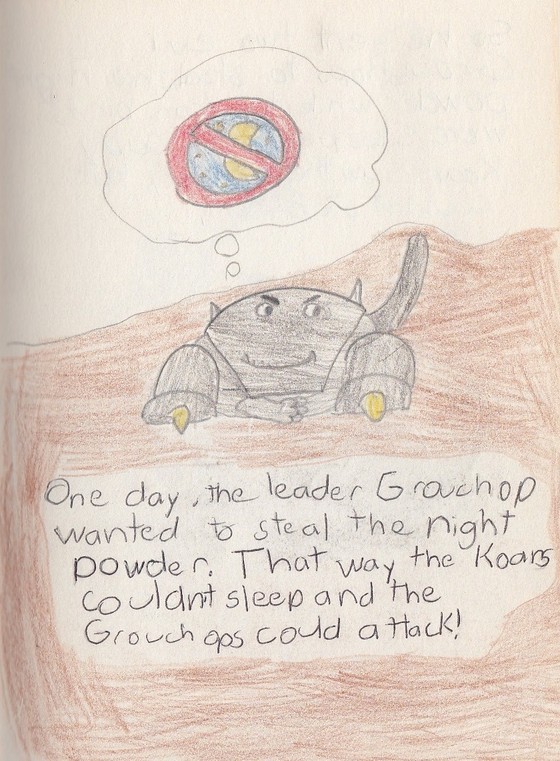 One day, the leader Grouchop
wanted to steal the night
powder. That way the Koars
couldnt sleep and the
Grouchops could attack!